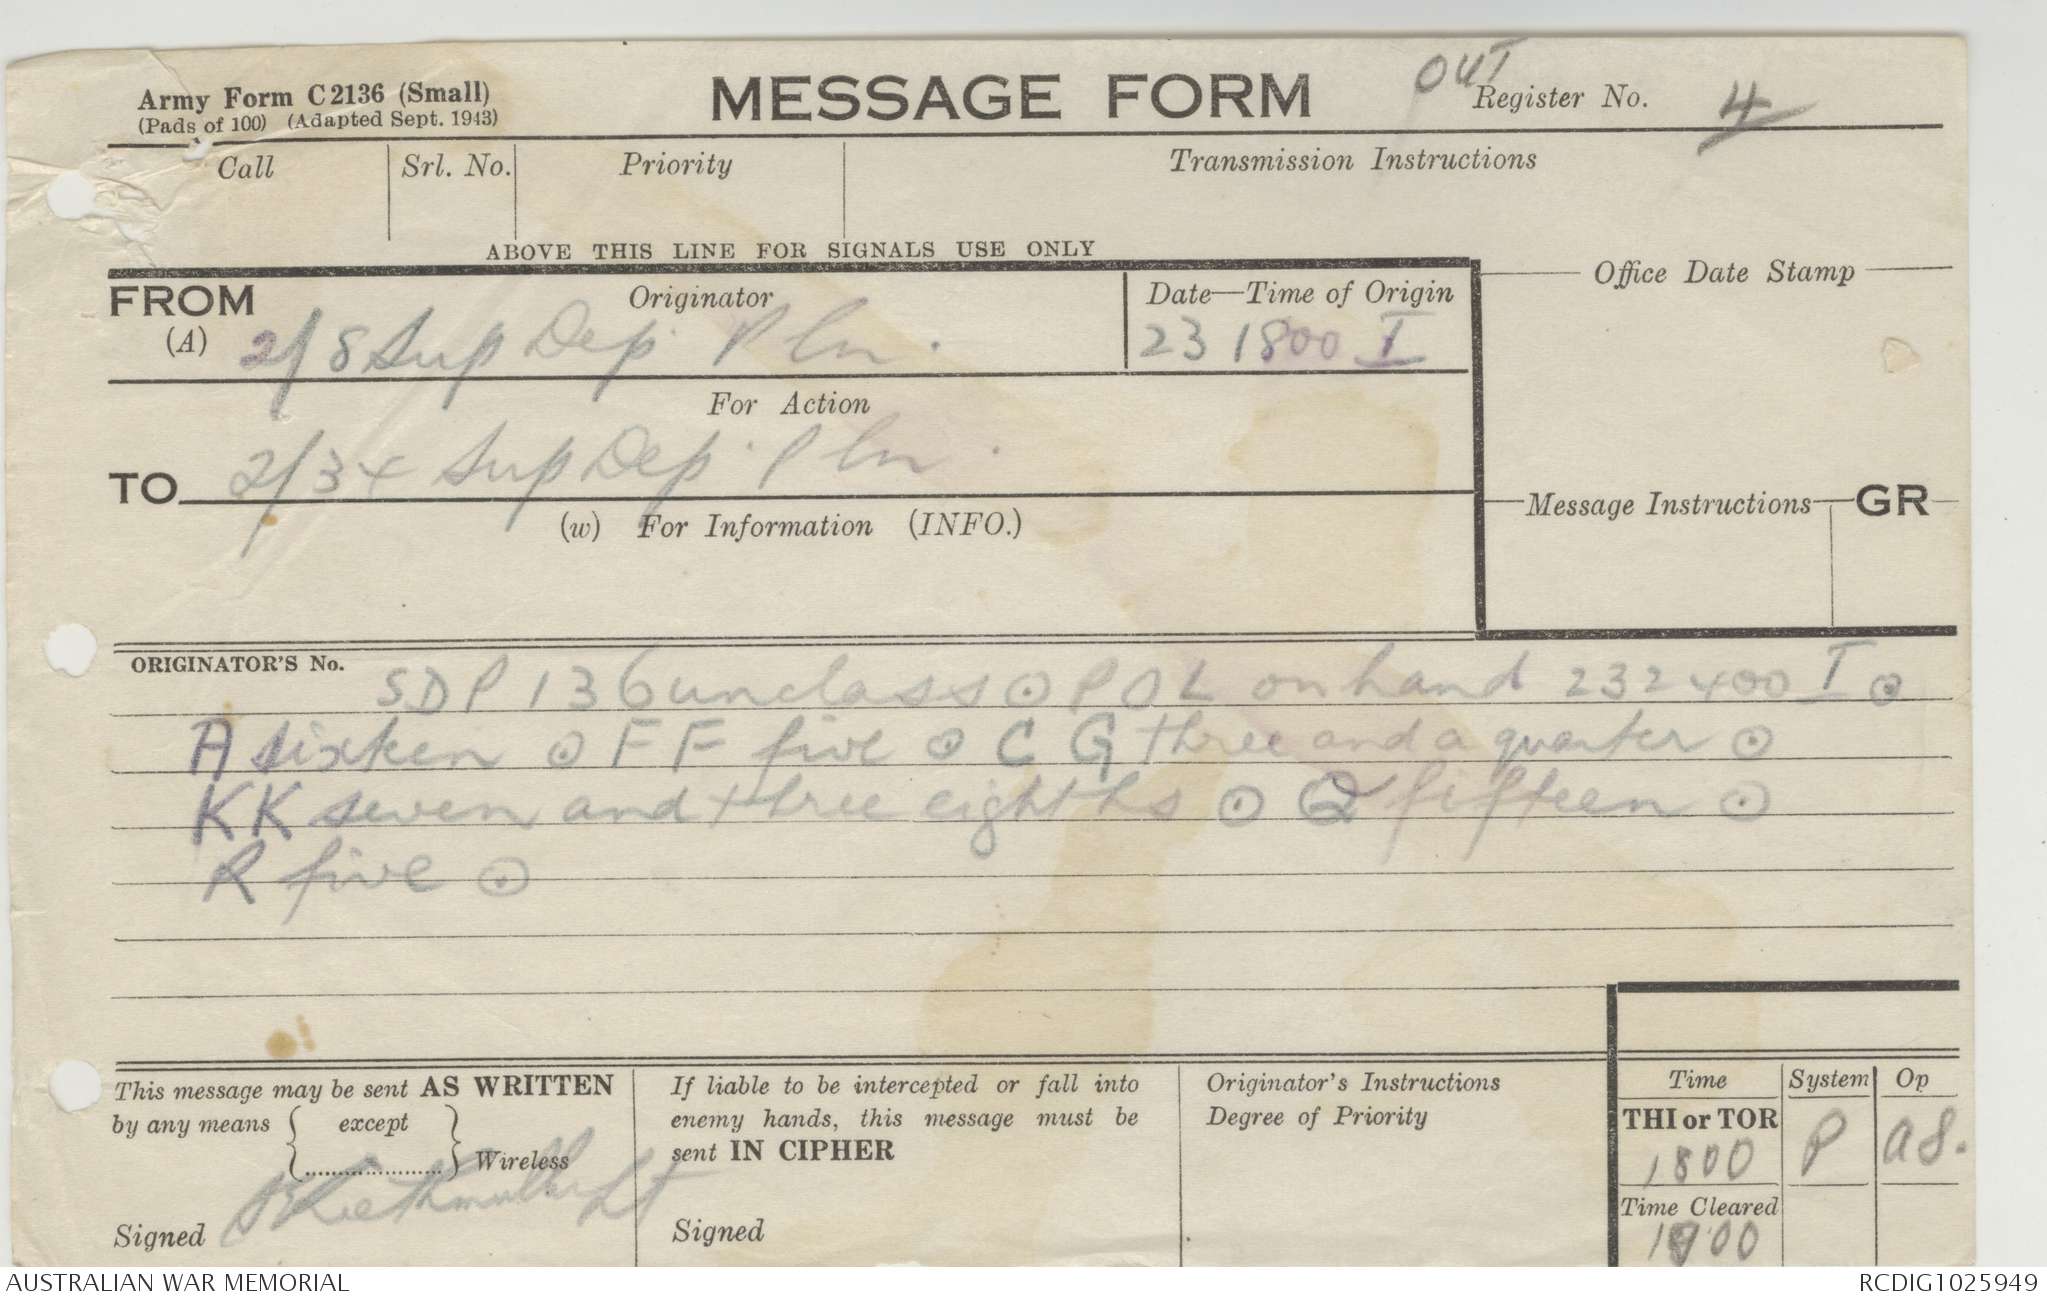 Army Form C 2136 (Small)
(Pads of 100) (Adapted Sept. 1943)
MESSAGE FORM
OUT
Register No. 4
Call Srl. No. Priority Transmission Instructions
ABOVE THIS LINE FOR SIGNALS USE ONLY
FROM Originator Date—Time of Origin Office Date Stamp
(A) 2/8 Sup Dep. Pln. 23 1800 I
For Action
TO 2/34 Sup Dep. Pln.
(w) For Information (INFO.)
Message Instructions GR
ORIGINATOR'S No.
SDP 136 unclass ⊙ POL on hand 232400 I ⊙
A sixteen ⊙ FF five ⊙ CG three and a quarter ⊙
KK seven and three eighths ⊙ Q fifteen ⊙
R five ⊙
This message may be sent AS WRITTEN
by any means { except
.....................} Wireless
Signed Lt
If liable to be intercepted or fall into
enemy hands, this message must be
sent IN CIPHER
Signed
Originator's Instructions
Degree of Priority
Time System Op
THI or TOR
1800 P AS.
Time Cleared
1900
AUSTRALIAN WAR MEMORIAL RCDIG1025949